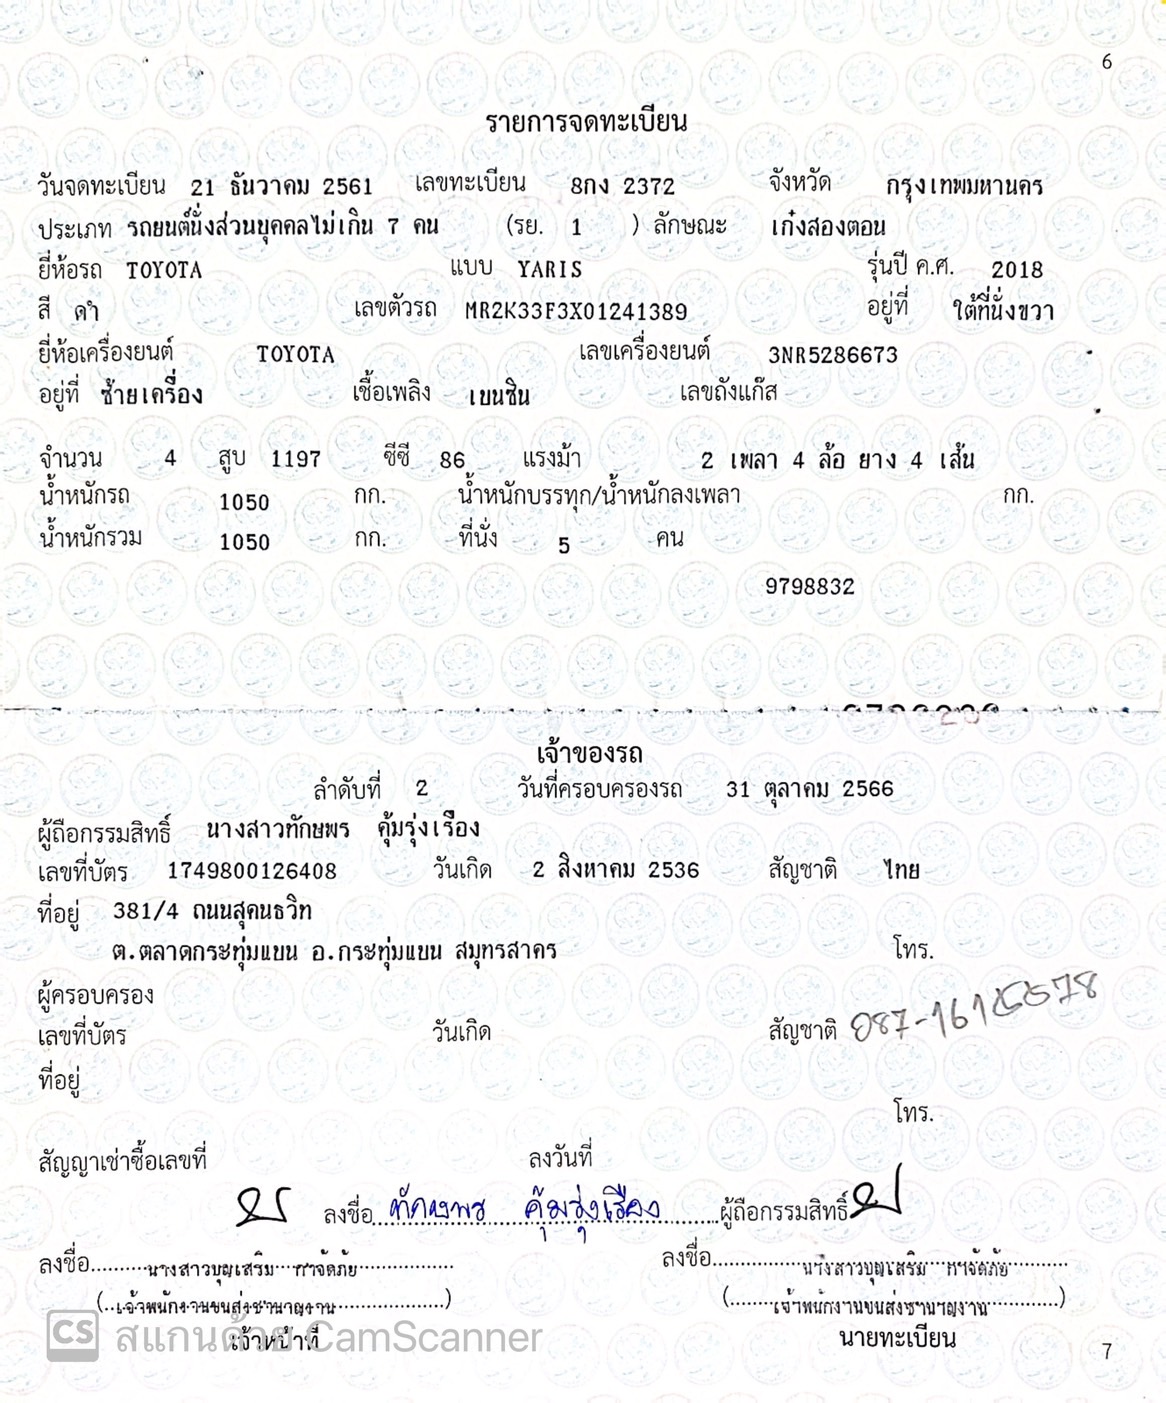 6
รายการจดทะเบียน
วันจดทะเบียน 21 ธันวาคม 2561 เลขทะเบียน 8กง 2372 จังหวัด กรุงเทพมหานคร
ประเภท รถยนต์นั่งส่วนบุคคลไม่เกิน 7 คน (รย. 1 ) ลักษณะ เก๋งสองตอน
ยี่ห้อรถ TOYOTA แบบ YARIS รุ่นปี ค.ศ. 2018
สี ดำ เลขตัวรถ MR2K33F3X01241389 อยู่ที่ ใต้ที่นั่งขวา
ยี่ห้อเครื่องยนต์ TOYOTA เลขเครื่องยนต์ 3NR5286673
อยู่ที่ ซ้ายเครื่อง เชื้อเพลิง เบนซิน เลขถังแก๊ส
จำนวน 4 สูบ 1197 ซีซี 86 แรงม้า 2 เพลา 4 ล้อ ยาง 4 เส้น
น้ำหนักรถ 1050 กก. น้ำหนักบรรทุก/น้ำหนักลงเพลา กก.
น้ำหนักรวม 1050 กก. ที่นั่ง 5 คน
9798832
เจ้าของรถ
ลำดับที่ 2 วันที่ครอบครองรถ 31 ตุลาคม 2566
ผู้ถือกรรมสิทธิ์ นางสาวทักษพร คุ้มรุ่งเรือง
เลขที่บัตร 1749800126408 วันเกิด 2 สิงหาคม 2536 สัญชาติ ไทย
ที่อยู่ 381/4 ถนนสุคนธวิท
ต.ตลาดกระทุ่มแบน อ.กระทุ่มแบน สมุทรสาคร โทร.
ผู้ครอบครอง
เลขที่บัตร วันเกิด สัญชาติ
ที่อยู่
โทร.
สัญญาเช่าซื้อเลขที่ ลงวันที่
ลงชื่อ ทักษพร คุ้มรุ่งเรือง ผู้ถือกรรมสิทธิ์
ลงชื่อ นางสาวบุญเสริม กำจัดภัย ลงชื่อ นางสาวบุญเสริม กำจัดภัย
(เจ้าพนักงานขนส่งชำนาญงาน) (เจ้าพนักงานขนส่งชำนาญงาน)
เจ้าหน้าที่ นายทะเบียน
CS สแกนด้วย CamScanner
7